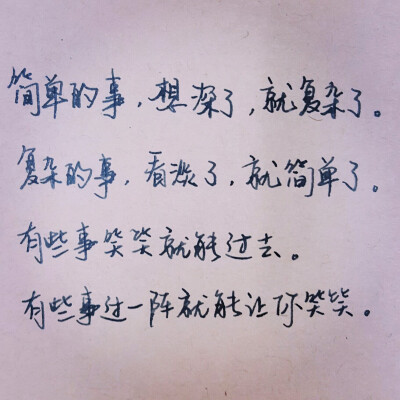 简单的事，想深了，就复杂了。
复杂的事，看淡了，就简单了。
有些事笑笑就能过去。
有些事过一阵就能让你笑笑。